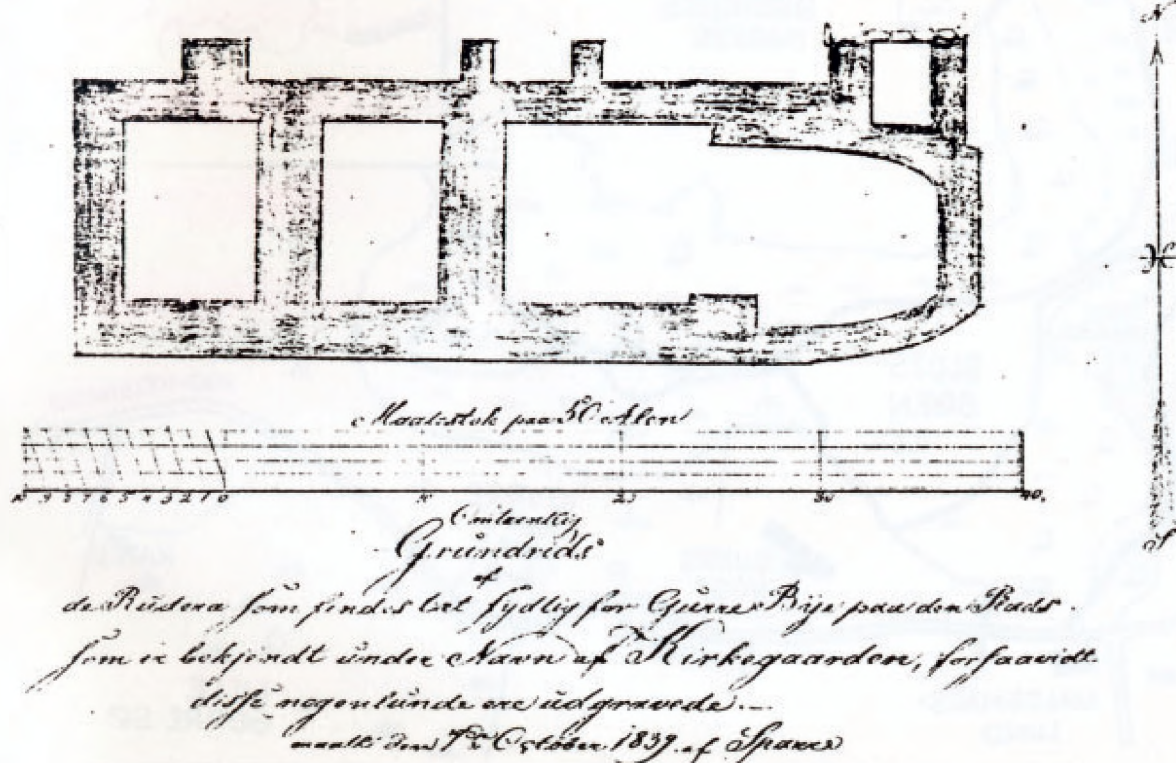 N
Maalestok paa 50 Alen
10 9 8 7 6 5 4 3 2 1 0 10 20 30 40.
S
Omtrentlig
Grundrids
af
de Rudera som findes tæt sydlig for Gurre Bye paa den Plads
som er bekjendt under Navn af Kirkegaarden, forsaavidt
disse nogenlunde ere udgravede.—
maalt den 7de October 1839 af Sparre